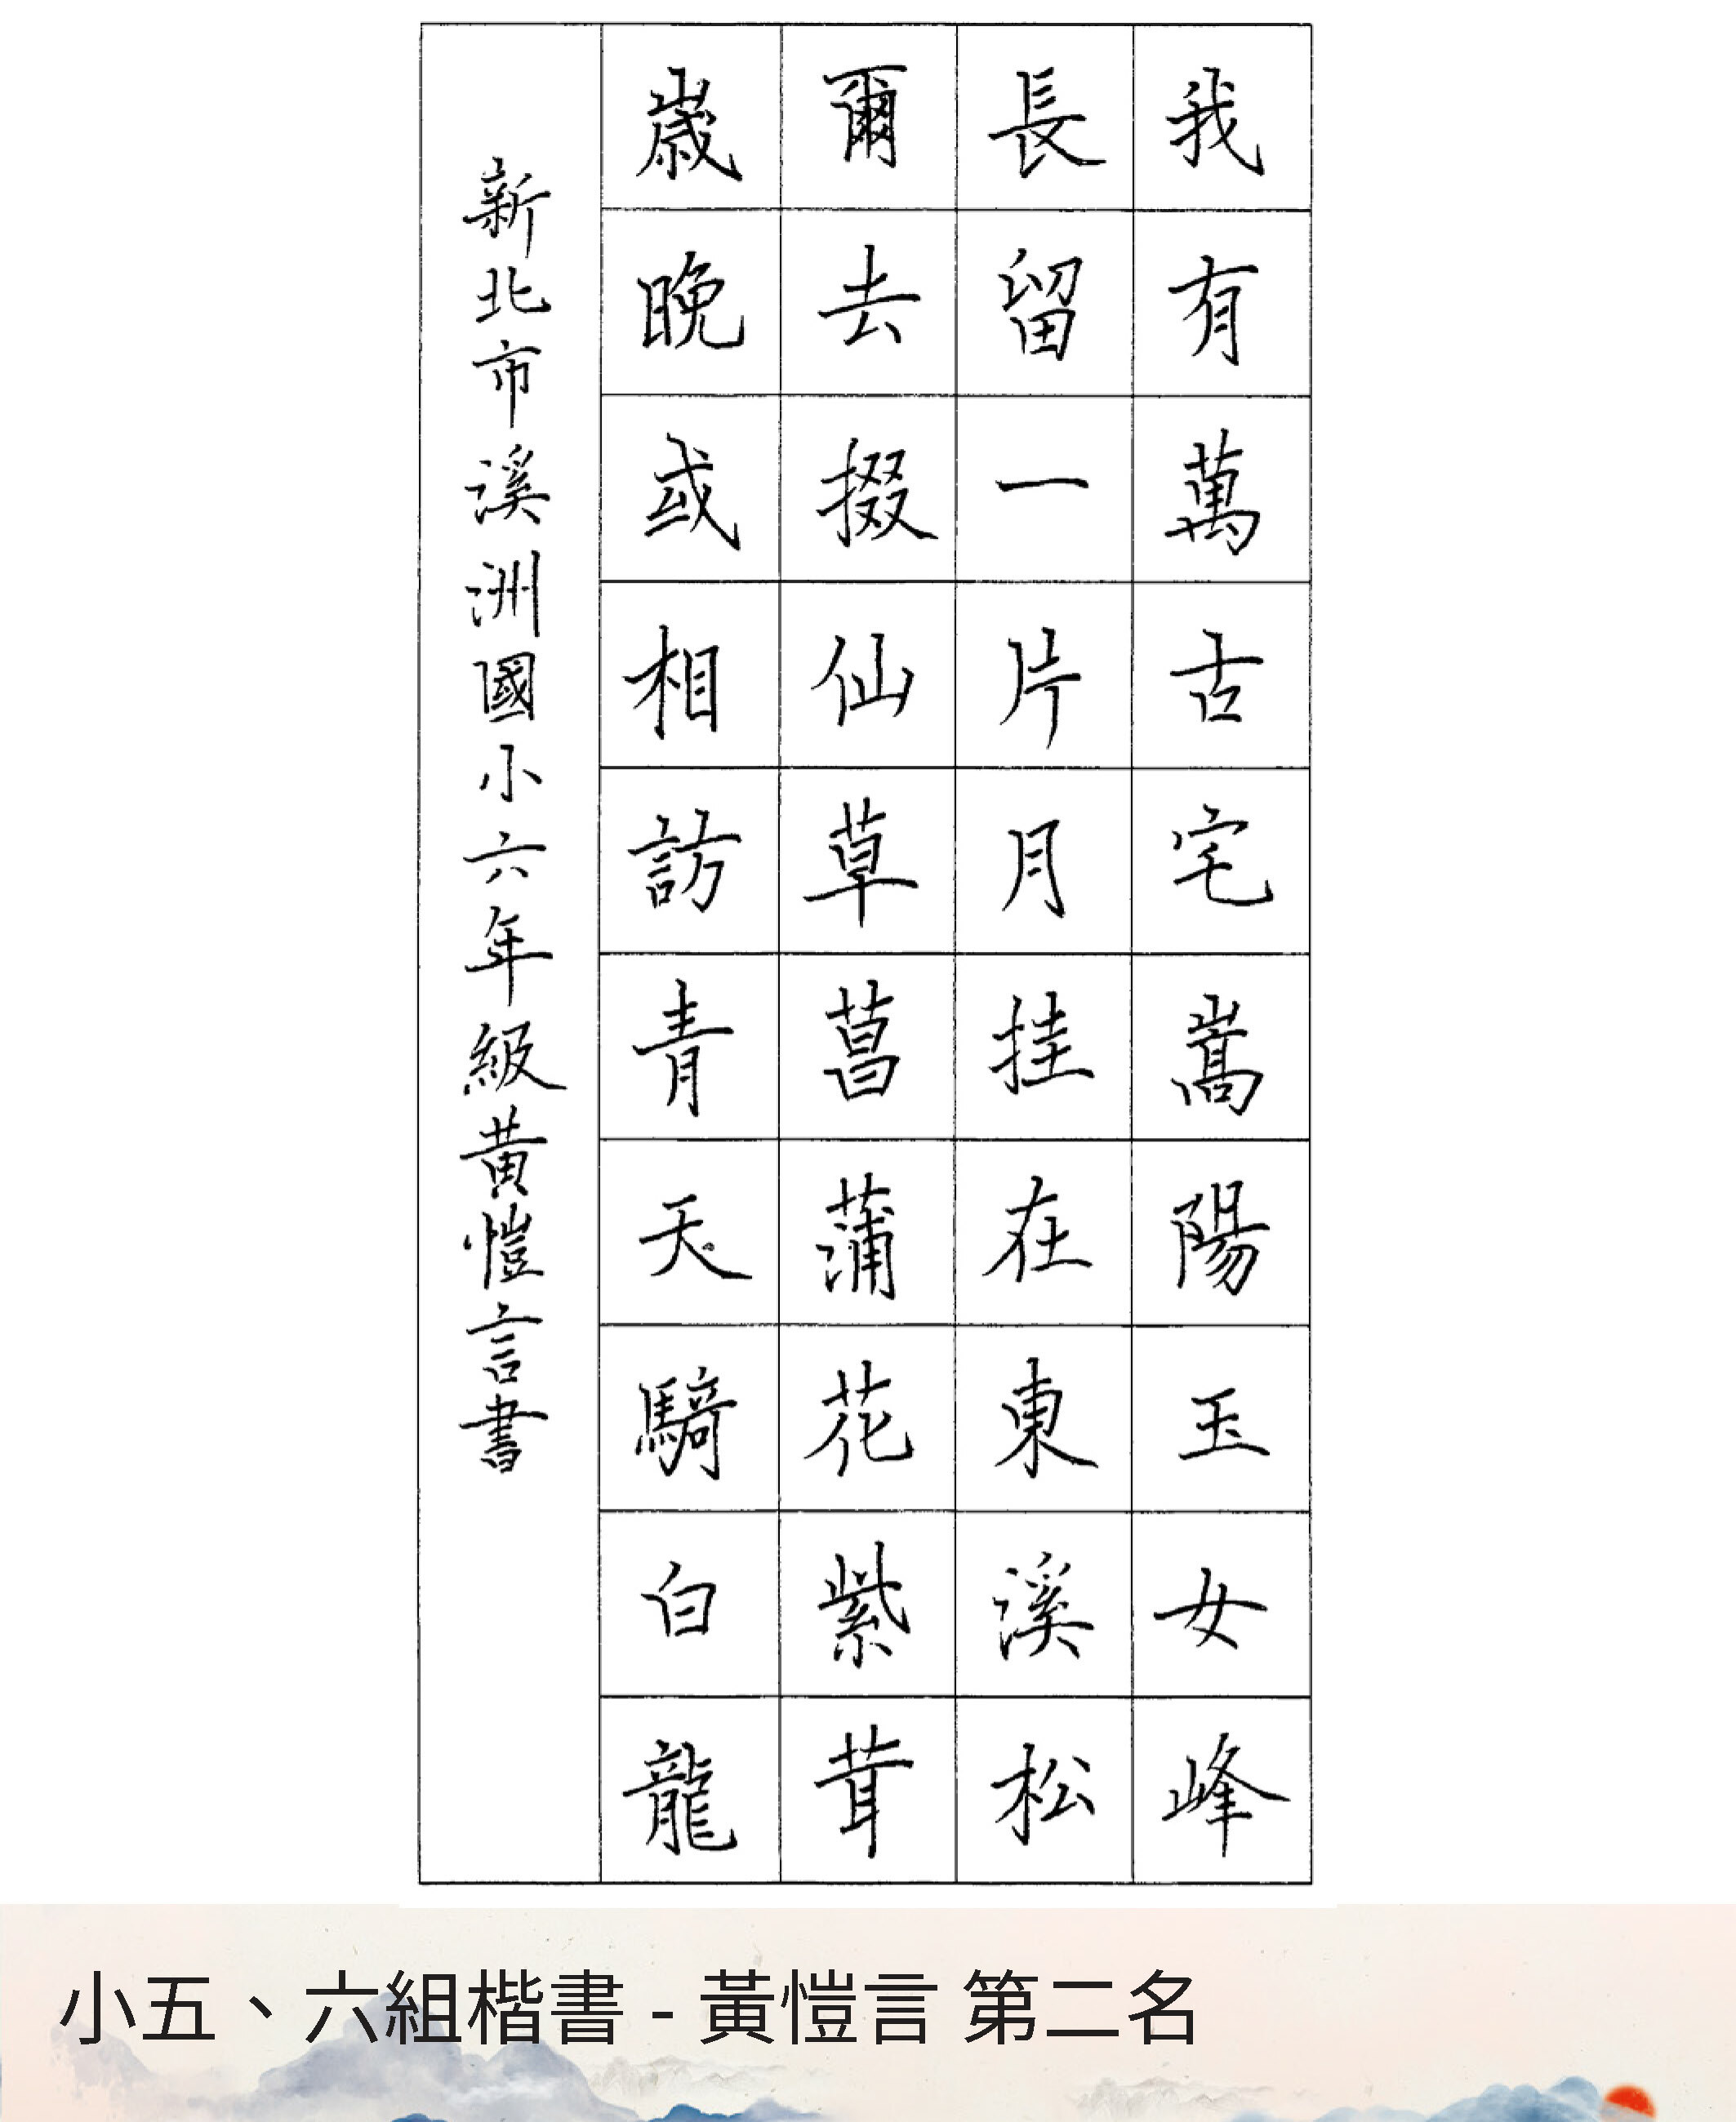 我有萬古宅嵩陽玉女峰
長留一片月挂在東溪松
爾去掇仙草菖蒲花紫茸
歲晚或相訪青天騎白龍
新北市溪洲國小六年級黃愷言書
小五、六組楷書 - 黃愷言 第二名